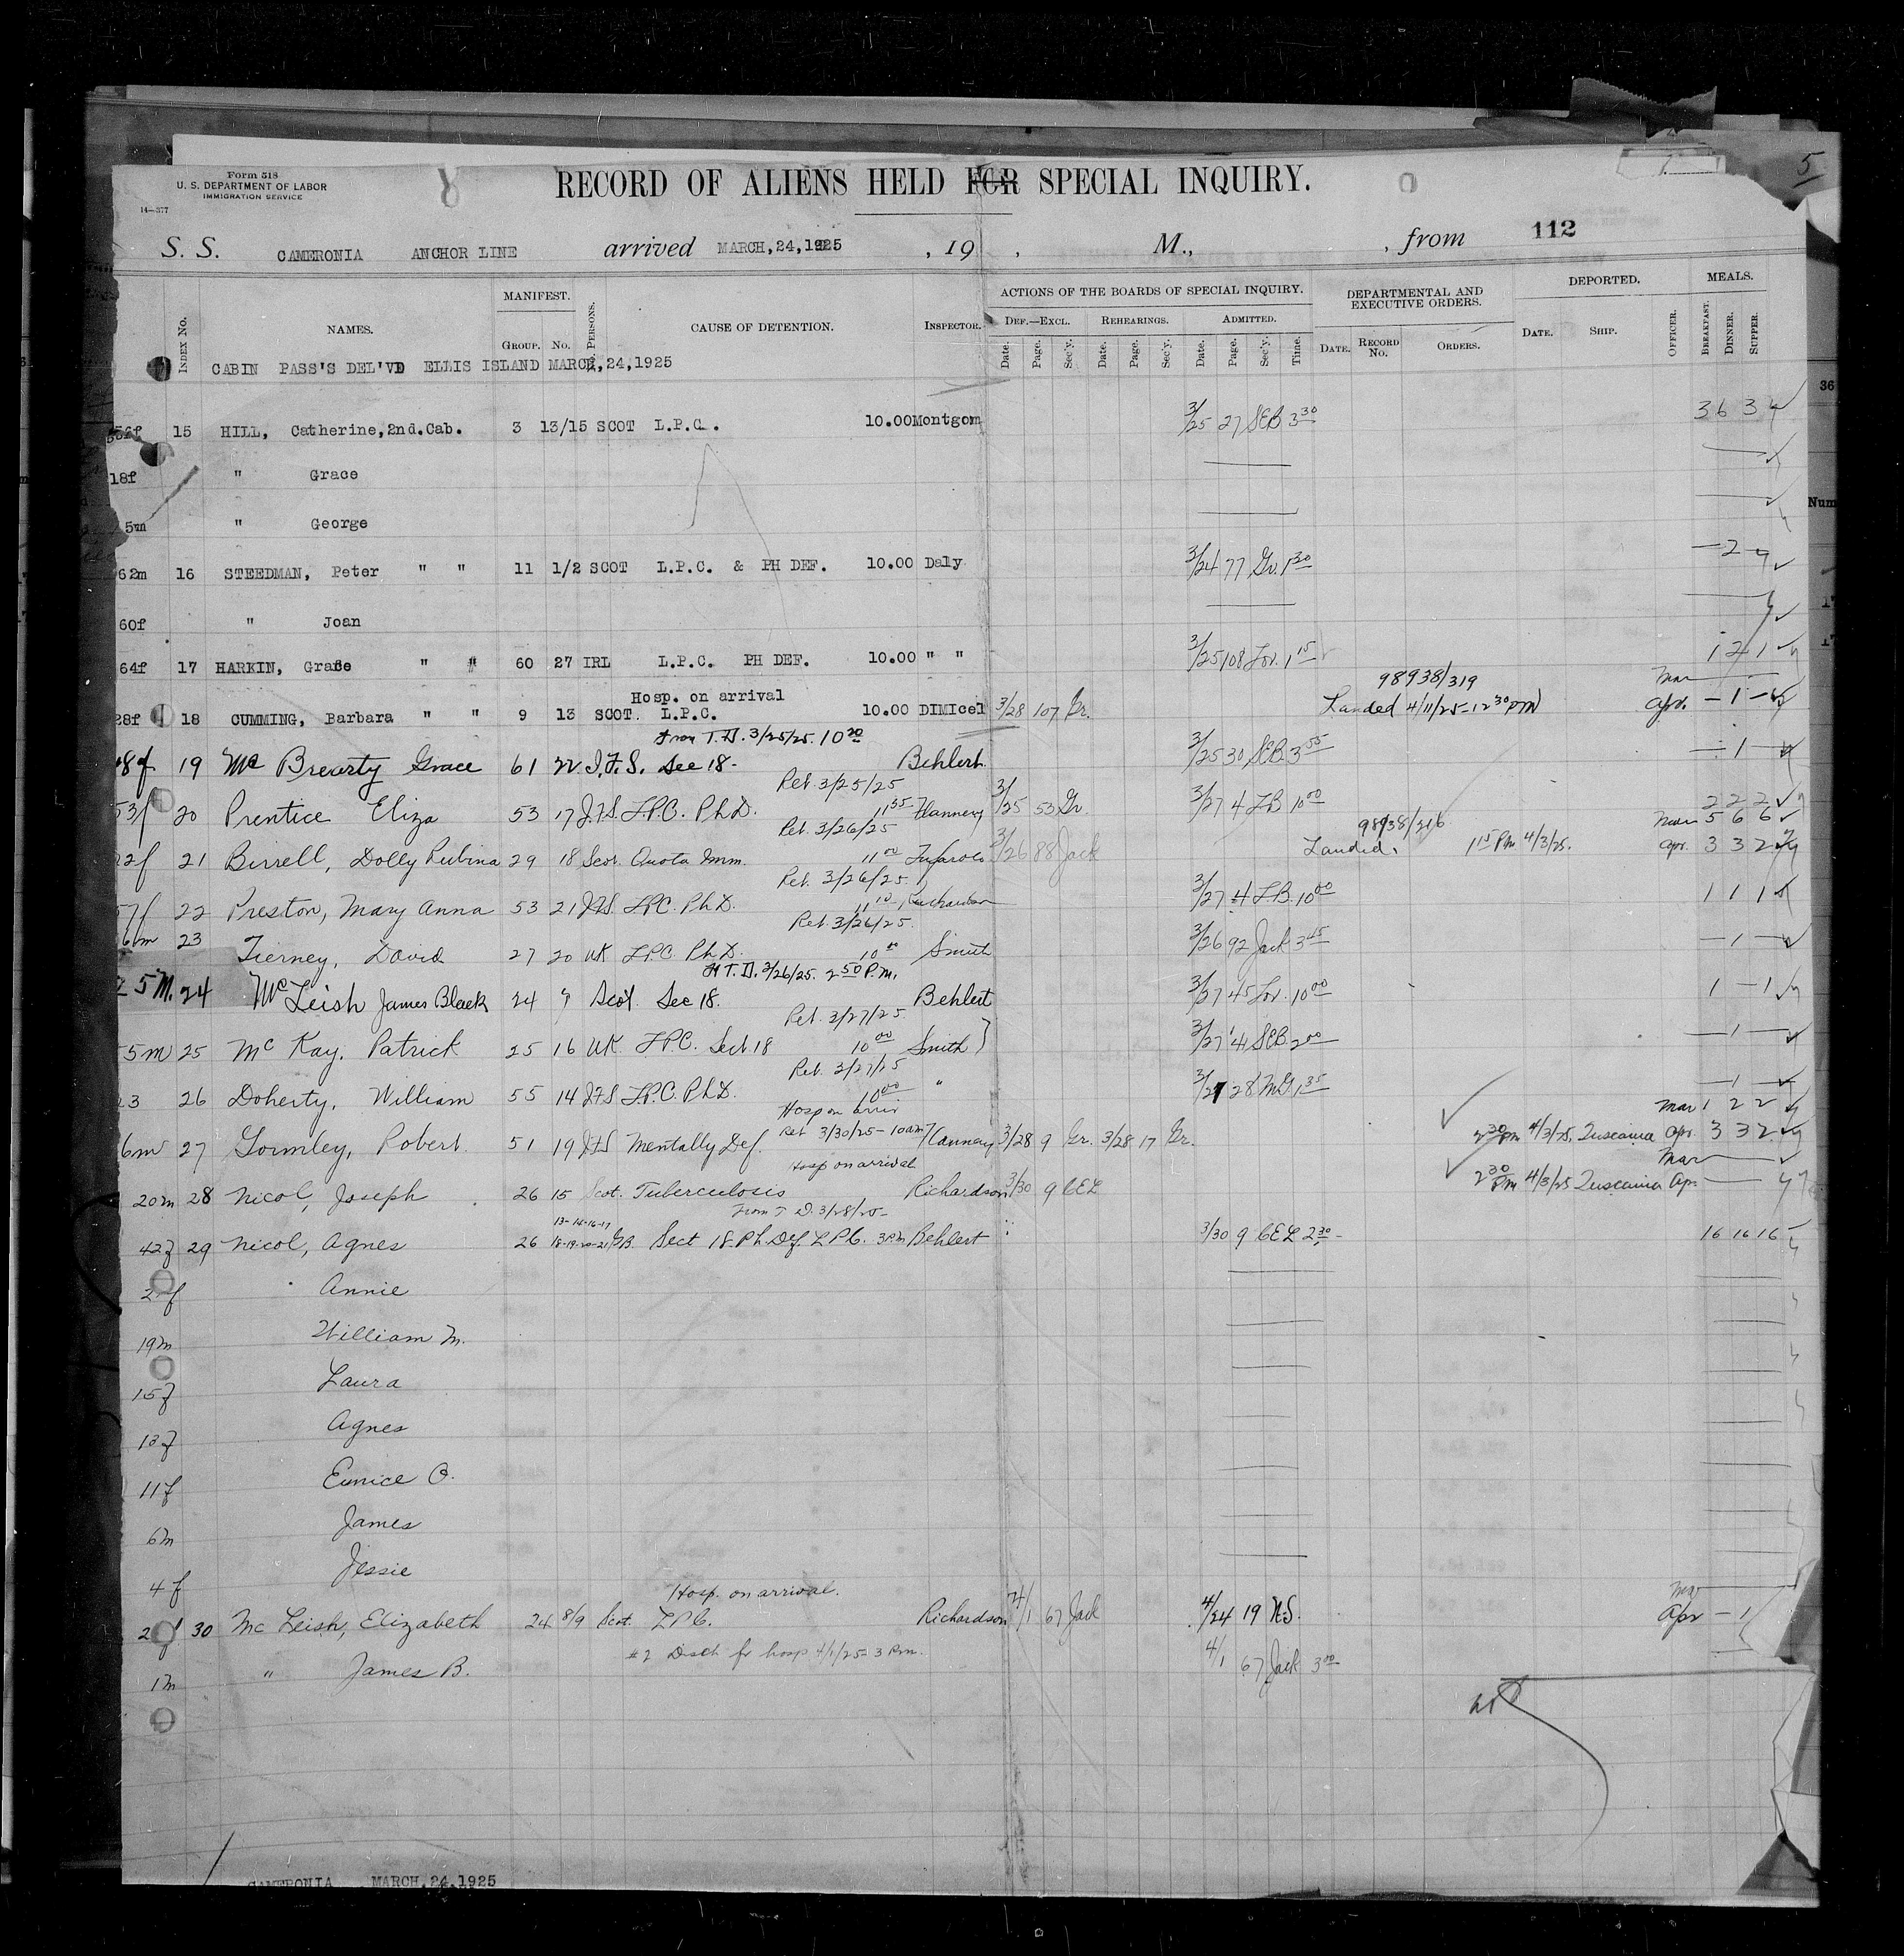 Form 518
U. S. DEPARTMENT OF LABOR
IMMIGRATION SERVICE
14—377
RECORD OF ALIENS HELD FOR SPECIAL INQUIRY.
5
112
S. S. CAMERONIA ANCHOR LINE arrived MARCH,24,1925 , 19 , M., , from
INDEX No. NAMES. MANIFEST. GROUP. No. PERSONS. CAUSE OF DETENTION. INSPECTOR. ACTIONS OF THE BOARDS OF SPECIAL INQUIRY. DEPARTMENTAL AND EXECUTIVE ORDERS. DEPORTED. MEALS.
DEF.—EXCL. REHEARINGS. ADMITTED.
Date. Page. Sec'y. Date. Page. Sec'y. Date. Page. Sec'y. Time. DATE. RECORD No. ORDERS. DATE. SHIP. OFFICER. BREAKFAST. DINNER. SUPPER.
CABIN PASS'S DEL'VD ELLIS ISLAND MARCH,24,1925
36
15 HILL, Catherine,2nd.Cab. 3 13/15 SCOT L.P.C. 10.00 Montgom 3/25 27 SEB 3 30 3 6 3
18f " Grace
5m " George
Num
62m 16 STEEDMAN, Peter " " 11 1/2 SCOT L.P.C. & PH DEF. 10.00 Daly 3/24 77 Gr. 1 30 — 2 —
60f " Joan
64f 17 HARKIN, Grace " " 60 27 IRL L.P.C. PH DEF. 10.00 " " 3/25 108 Lov. 1 15 1 2 1
Hosp. on arrival 98938/319 Mar
28f 18 CUMMING, Barbara " " 9 13 SCOT. L.P.C. 10.00 DIMIcel 3/28 107 Gr. Landed 4/11/25-12 30 PM Apr. — 1 —
from T.D. 3/25/25. 10 20
48f 19 Mc Brearty Grace 61 22 I.F.S. Sec 18- Behlert. 3/25 30 SEB 3 55 — 1 —
Ret. 3/25/25
53f 20 Prentice Eliza 53 17 I.F.S. L.P.C. Ph.D. 11 35 Flannery 3/25 53 Gr. 3/27 4 LB 10 00 2 2 2
Ret. 3/26/25 98938/316 Mar 5 6 6
22f 21 Birrell, Dolly Rubina 29 18 Scot. Quota Imm. 11 00 3/26 88 Jack Landed. 1 15 PM 4/3/25. Apr. 3 3 2
Ret. 3/26/25.
57f 22 Preston, Mary Anna 53 21 I.F.S. L.P.C. Ph.D. 11 10 Richardson 3/27 4 LB. 10 00 1 1 1
Ret. 3/26/25.
6m 23 Tierney, David 27 20 UK L.P.C. Ph.D. 10 00 Smith 3/26 92 Jack 3 45 — 1 —
T.D. 3/26/25. 2 50 P.M.
25M. 24 McLeish James Black 24 7 Scot. Sec 18. Behlert 3/27 45 Lov. 10 00 1 — 1
Ret. 3/27/25.
55m 25 Mc Kay, Patrick 25 16 UK L.P.C. Sect. 18 10 00 Smith 3/27 41 SEB 2 00 — 1 —
Ret. 3/27/25
23 26 Doherty, William 55 14 I.F.S L.P.C. Ph.D. 10 00 " 3/27 28 McG 1 35 — 1 —
Hosp on arriv Mar 1 2 2
Ret 3/30/25-10am
6m 27 Gormley, Robert 51 19 I.F.S Mentally Def. Flannery 3/28 9 Gr. 3/28 17 Gr. 2 30 PM 4/3/25, Tuscania Apr. 3 3 2
Hosp on arrival Mar
20m 28 Nicol, Joseph 26 15 Scot. Tuberculosis Richardson 3/30 9 CEL 2 30 PM 4/3/25 Tuscania Apr
from T D. 3/28/25-
13-14-16-17
42f 29 Nicol, Agnes 26 18-19-20-21 GB. Sect 18 Ph. Def. L P C. 3 PM Behlert 3/30 9 CEL 2 30 16 16 16
2 f Annie
19m William M.
15f Laura
13f Agnes
11f Eunice O.
6m James
4f Jessie
Hosp. on arrival. Mar
30 Mc Leish, Elizabeth 24 8/9 Scot. L P C. Richardson 4/1 67 Jack 4/24 19 N.S. Apr — 1
#2 Disch fr hosp 4/1/25 3 P.m.
1m " James B. 4/1 67 Jack 3 00
CAMERONIA MARCH,24,1925